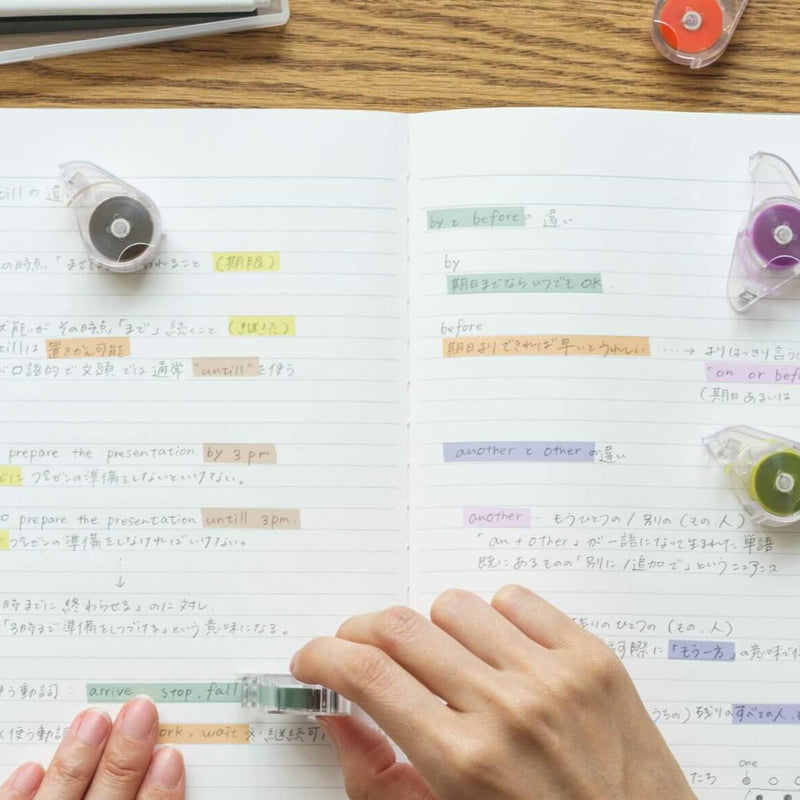 tillの違い
の時点,「まで
われること (期限)
が その時点,「まで」続くこと (継続)
tillは 置きかえ可能
口語的で文頭では通常 "untill"を使う
prepare the presentation by 3 pm
プレゼンの準備をしないといけない。
o prepare the presentation untill 3pm.
プレゼンの準備をしなければいけない。
時までに 終わらせる」のに 対し、
「3時まで準備をしつづける」という 意味になる。
使う動詞: arrive stop, fall
使う動詞
ork, wait
継続可
byと beforeの 違い
by
期日までなら いつでもOK.
before
期日よりできれば早いとうれしい …→ よりはっきり言う
"on or befo
(期日 あるいは
anotherと otherの違い
another … もうひとつの/別の (もの, 人)
「an + other」が一語になって生まれた単語
既にあるものの「別に/追加で」というニュアンス
残りのひとつの (もの, 人)
際に「もう一方」の意味で
うちの) 残りのすべての人,
たち
one